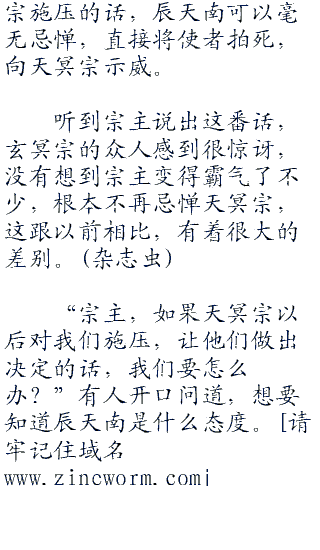 宗施压的话，辰天南可以毫
无忌惮，直接将使者拍死，
向天冥宗示威。
听到宗主说出这番话，
玄冥宗的众人感到很惊讶，
没有想到宗主变得霸气了不
少，根本不再忌惮天冥宗，
这跟以前相比，有着很大的
差别。(杂志虫)
“宗主，如果天冥宗以
后对我们施压，让他们做出
决定的话，我们要怎么
办？”有人开口问道，想要
知道辰天南是什么态度。[请
牢记住域名
www.zincworm.com]